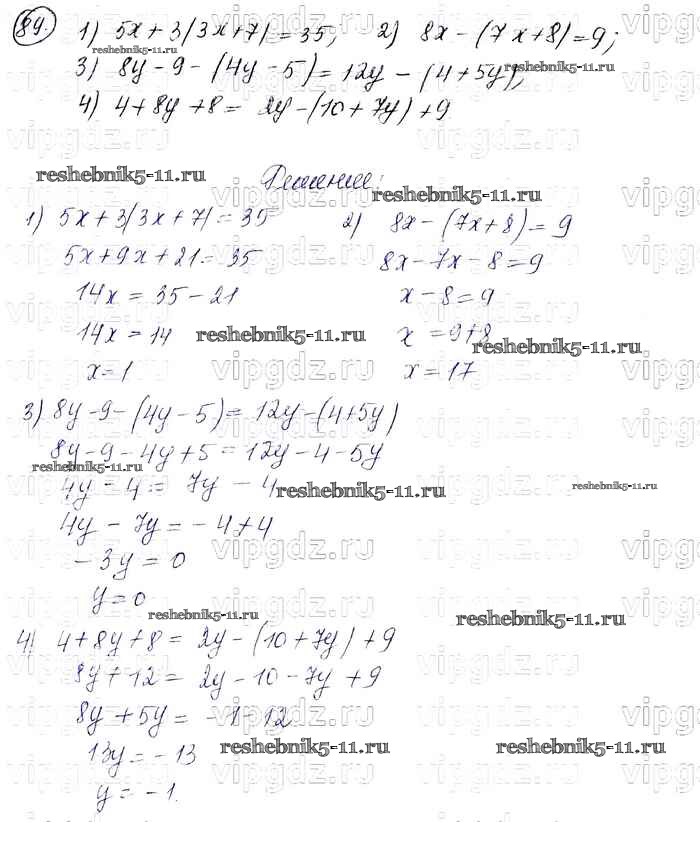 89. 1) 5x + 3(3x+7) = 35; 2) 8x - (7x+8) = 9;
3) 8y - 9 - (4y - 5) = 12y - (4+5y);
4) 4 + 8y + 8 = 2y - (10 + 7y) + 9
Решение:
1) 5x + 3(3x+7) = 35
5x + 9x + 21 = 35
14x = 35 - 21
14x = 14
x = 1
2) 8x - (7x+8) = 9
8x - 7x - 8 = 9
x - 8 = 9
x = 9+8
x = 17
3) 8y - 9 - (4y - 5) = 12y - (4+5y)
8y - 9 - 4y + 5 = 12y - 4 - 5y
4y - 4 = 7y - 4
4y - 7y = -4+4
-3y = 0
y = 0
4) 4 + 8y + 8 = 2y - (10 + 7y) + 9
8y + 12 = 2y - 10 - 7y + 9
8y + 5y = -1 - 12
13y = -13
y = -1.
reshebnik5-11.ru
reshebnik5-11.ru
reshebnik5-11.ru
reshebnik5-11.ru
reshebnik5-11.ru
reshebnik5-11.ru
reshebnik5-11.ru
reshebnik5-11.ru
reshebnik5-11.ru
reshebnik5-11.ru
reshebnik5-11.ru
reshebnik5-11.ru
reshebnik5-11.ru
vipgdz.ru